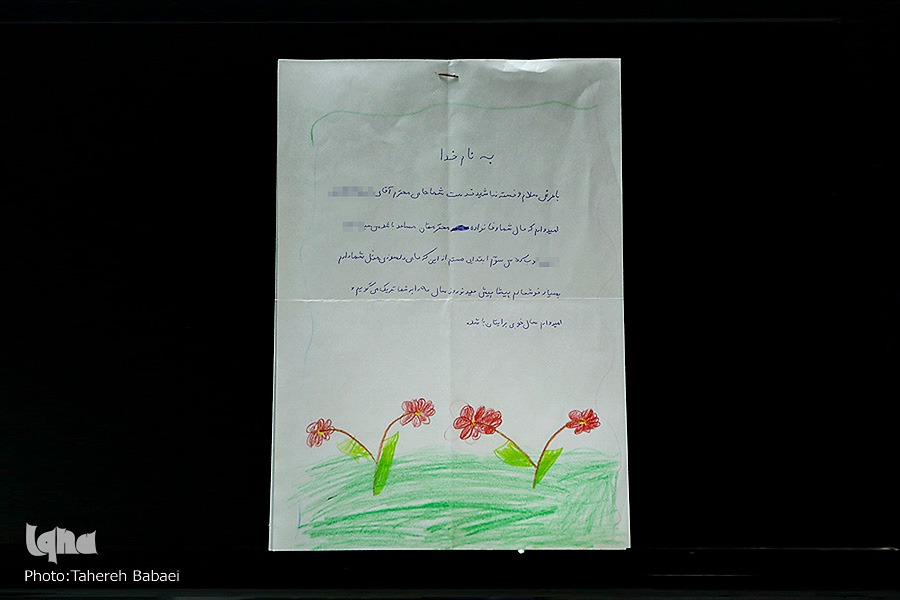 به نام خدا
با عرض سلام و خسته نباشید خدمت شما حامی محترم آقای
امیدوارم که حال شما و خانواده محترمتان مساعد باشد من
کلاس سوّم ابتدایی هستم از این که حامی دلسوزی مثل شما دارم
بسیار خوشحالم پیشاپیش عید نوروز سال را به شما تبریک می گویم و
امیدوارم سال خوبی برایتان باشد.
iqna
Photo:Tahereh Babaei